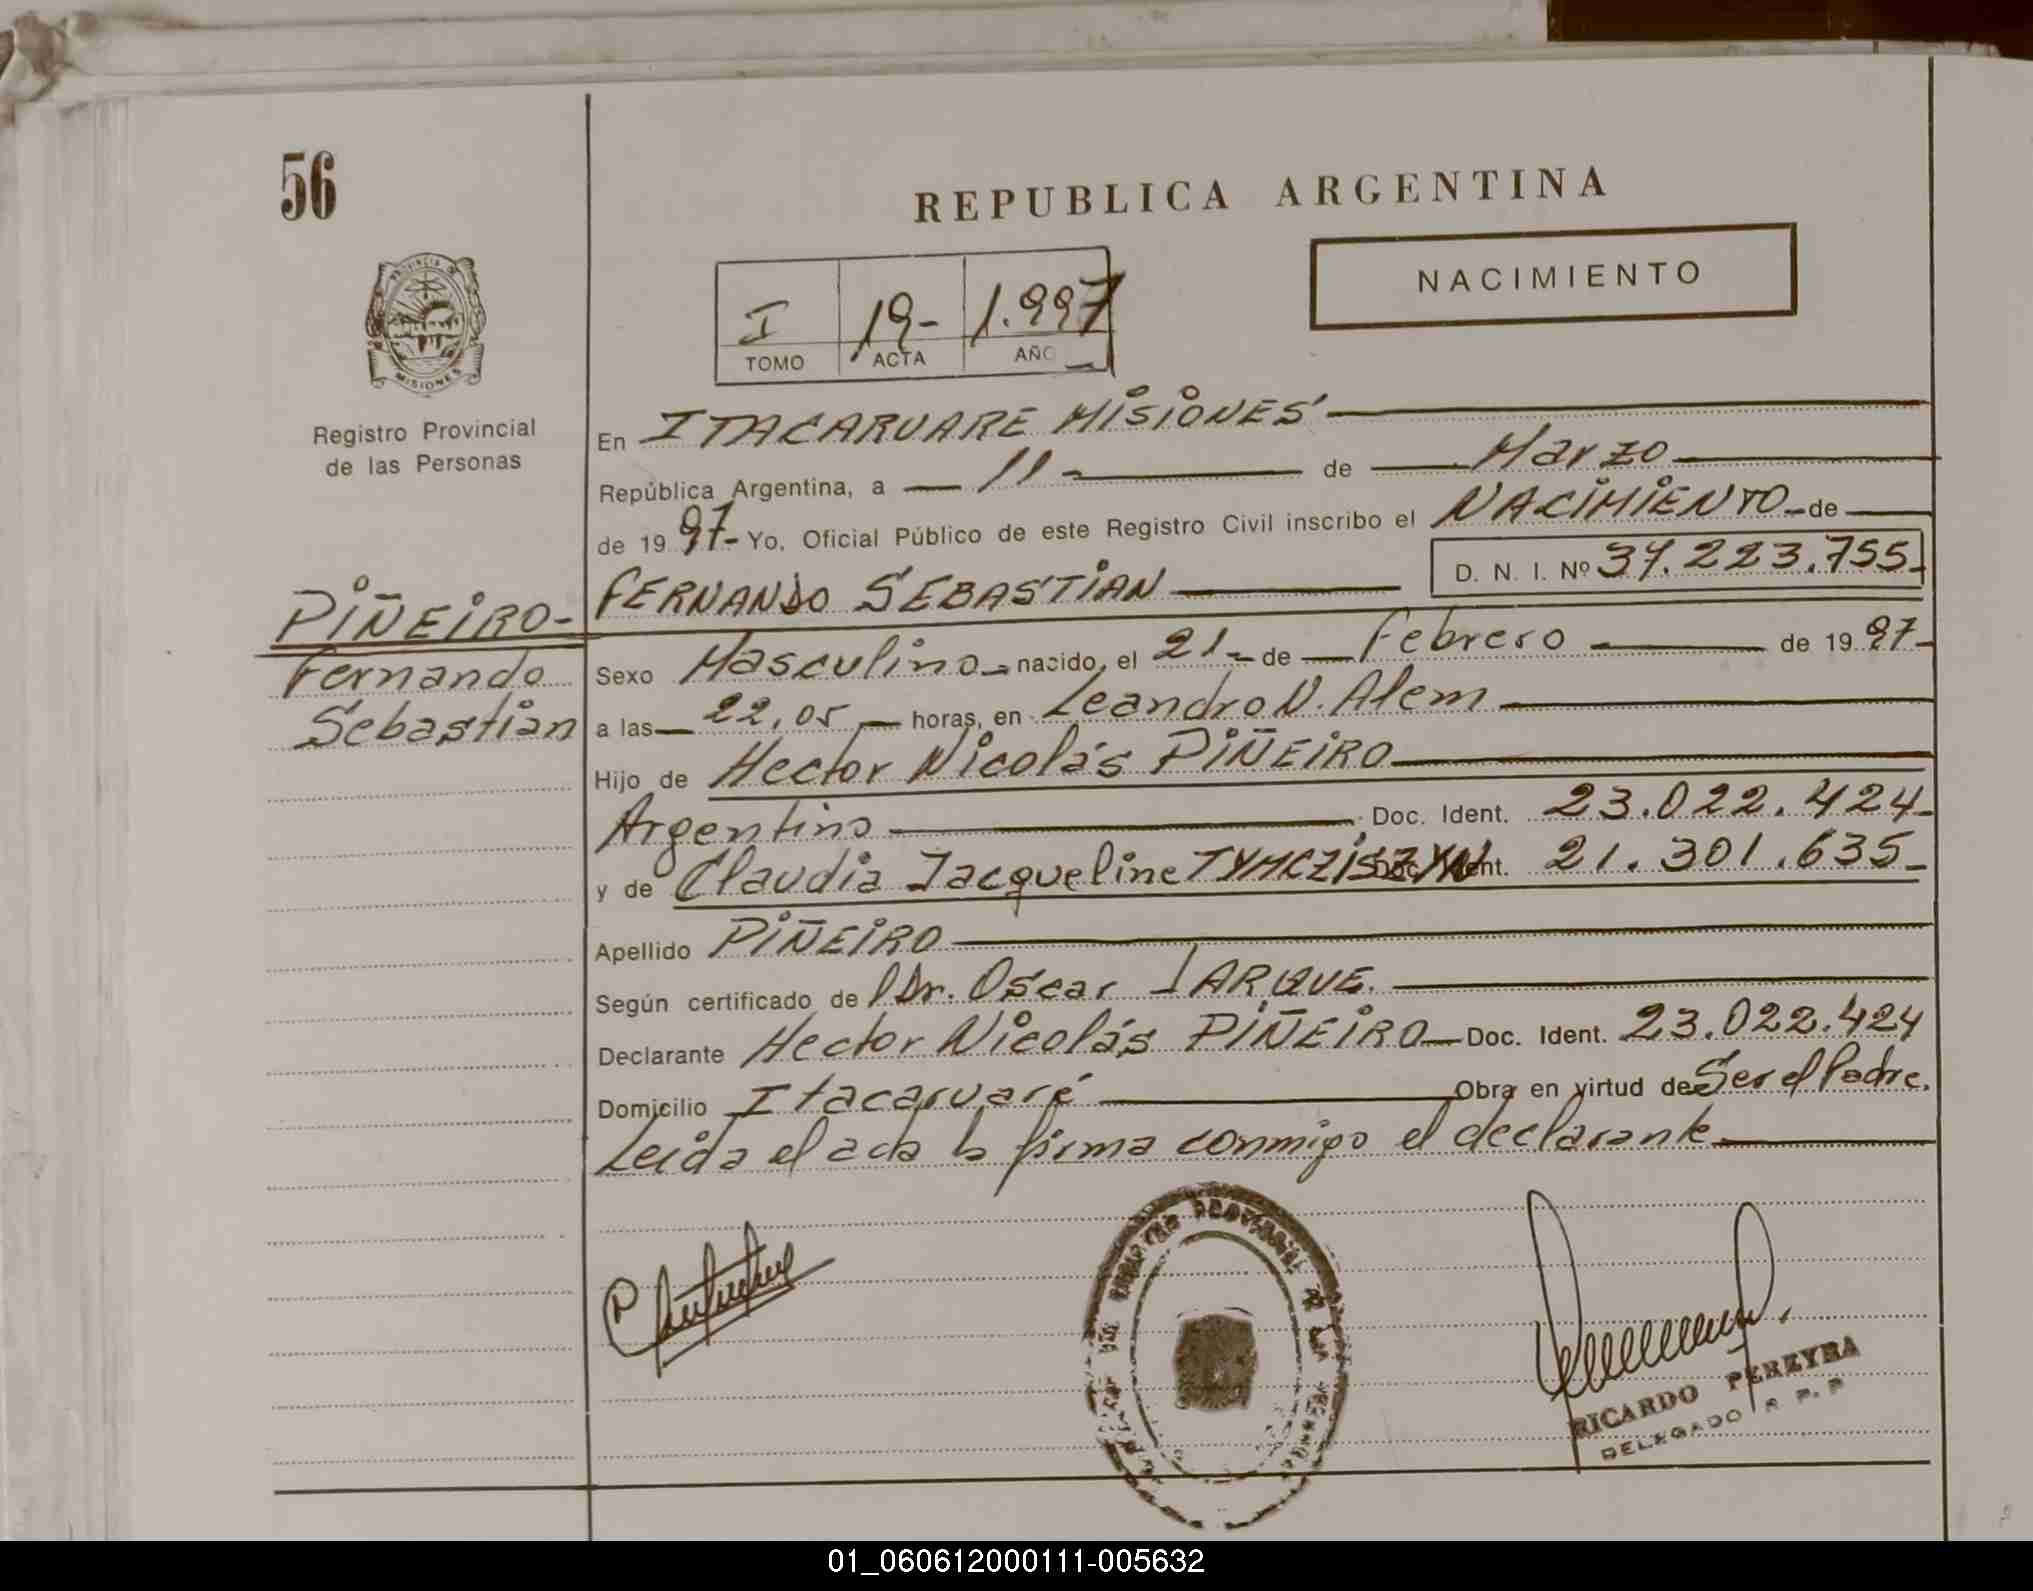 56
REPUBLICA ARGENTINA
NACIMIENTO
I 19- 1.997
TOMO ACTA AÑO
PROVINCIA DE
MISIONES
Registro Provincial
de las Personas
En ITACARUARE MISIONES
República Argentina, a 11- de Marzo
de 1997- Yo, Oficial Público de este Registro Civil inscribo el NACIMIENTO de
D. N. I. Nº 37.223.755-
PIÑEIRO- FERNANDO SEBASTIAN
Fernando
Sebastian
Sexo Masculino nacido, el 21- de Febrero de 1997-
a las 22,05 horas, en Leandro N. Alem
Hijo de Hector Nicolás PIÑEIRO
Argentino Doc. Ident. 23.022.424-
y de Claudia Jacqueline TYMCZISZYN Doc. Ident. 21.301.635-
Apellido PIÑEIRO
Según certificado de Dr. Oscar JARQUE.
Declarante Hector Nicolás PIÑEIRO Doc. Ident. 23.022.424
Domicilio Itacaruaré Obra en virtud de Ser el Padre.
Leida el acta la firma conmigo el declarante
RICARDO PEREYRA
DELEGADO R. P. P.
01_060612000111-005632